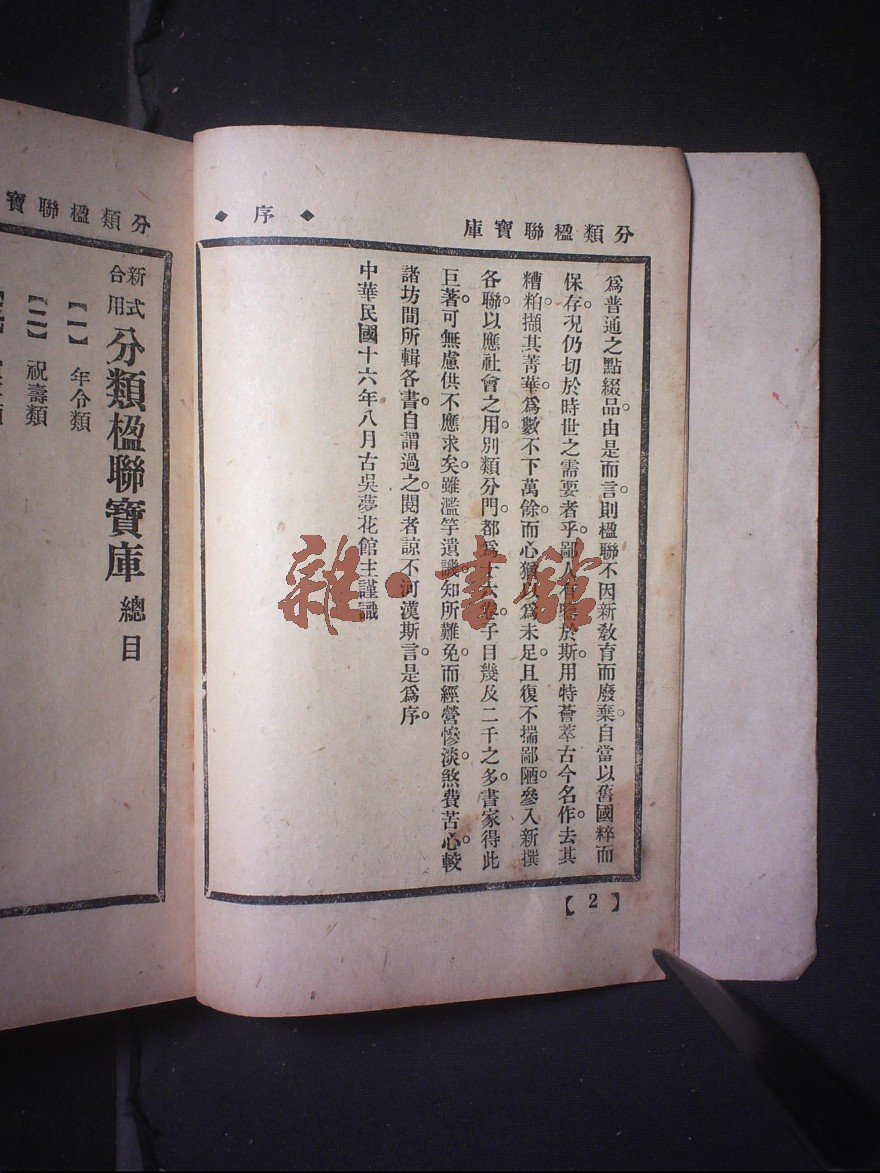 分類楹聯寶庫
◆ 序 ◆
爲普通之點綴品。由是而言。則楹聯不因新敎育而廢棄。自當以舊國粹而
保存。况仍切於時世之需要者乎。鄙人有於斯。用特薈萃古今名作。去其
糟粕。擷其菁華。爲數不下萬餘。而心猶以爲未足。且復不揣鄙陋。參入新撰
各聯。以應社會之用。別類分門。都爲十六卷。子目幾及二千之多。書家得此
巨著。可無慮供不應求矣。雖濫竽遺譏。知所難免。而經營慘淡。煞費苦心。較
諸坊間所輯各書。自謂過之。閱者諒不河漢斯言。是爲序。
中華民國十六年八月古吳夢花館主謹識
【2】
分類楹聯寶
新式合用分類楹聯寶庫總目
【一】年令類
【二】祝壽類
雜·書館